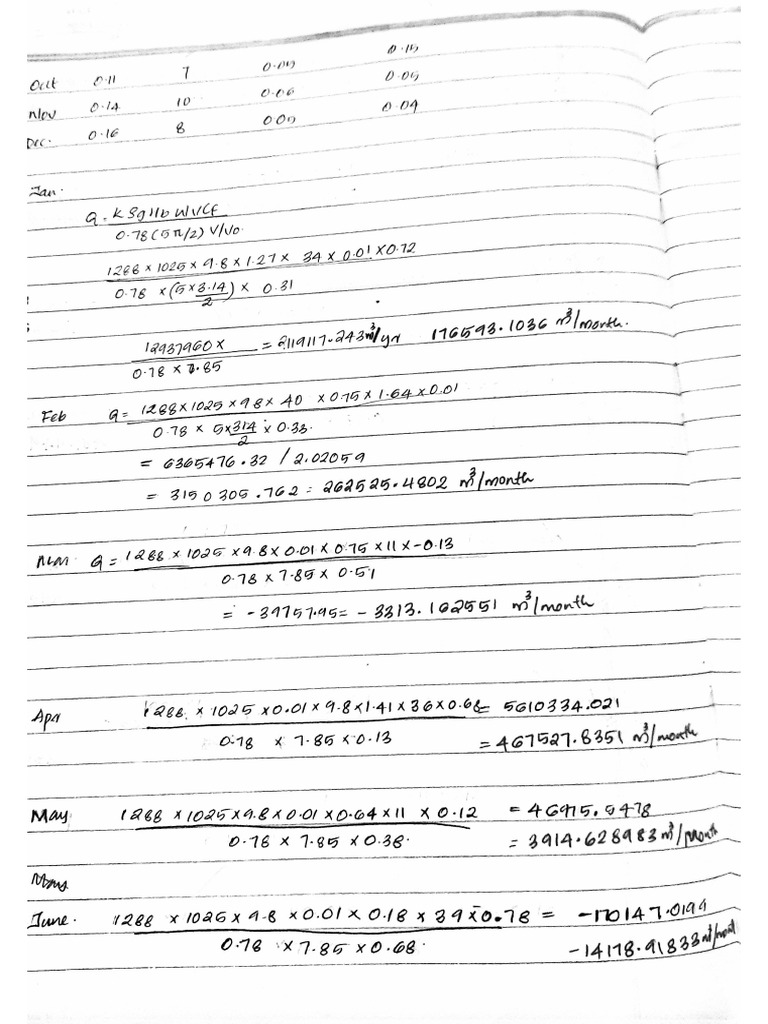 0.15
Oct 0.11 7 0.05
Nov 0.14 10 0.06 0.05
Dec. 0.16 8 0.05 0.04
Jan.
Q = K SgHb WVCf
0.78(5π/2) V/Vo
1288 × 1025 × 9.8 × 1.27 × 34 × 0.01 × 0.72
0.78 × (5 × 3.14) × 0.31
2
12937960 × = 2119117.243 m³/yr 176593.1036 m³/month.
0.78 × 7.85
Feb Q = 1288 × 1025 × 98 × 40 × 0.75 × 1.64 × 0.01
0.78 × 5 × 314 × 0.33.
2
= 6365476.32 / 2.02059
= 3150305.762 = 262525.4802 m³/month
Mar. Q = 1288 × 1025 × 9.8 × 0.01 × 0.75 × 11 × -0.13
0.78 × 7.85 × 0.51
= -39757.95 = -3313.162551 m³/month
Apr 1288 × 1025 × 0.01 × 9.8 × 1.41 × 36 × 0.68 = 5610334.021
0.78 × 7.85 × 0.13 = 467527.8351 m³/month
May 1288 × 1025 × 9.8 × 0.01 × 0.64 × 11 × 0.12 = 46975.5478
0.78 × 7.85 × 0.38. = 3914.628983 m³/month
June. 1288 × 1025 × 9.8 × 0.01 × 0.18 × 39 × -0.78 = -170147.0199
0.78 × 7.85 × 0.68. -14178.91833 m³/mont